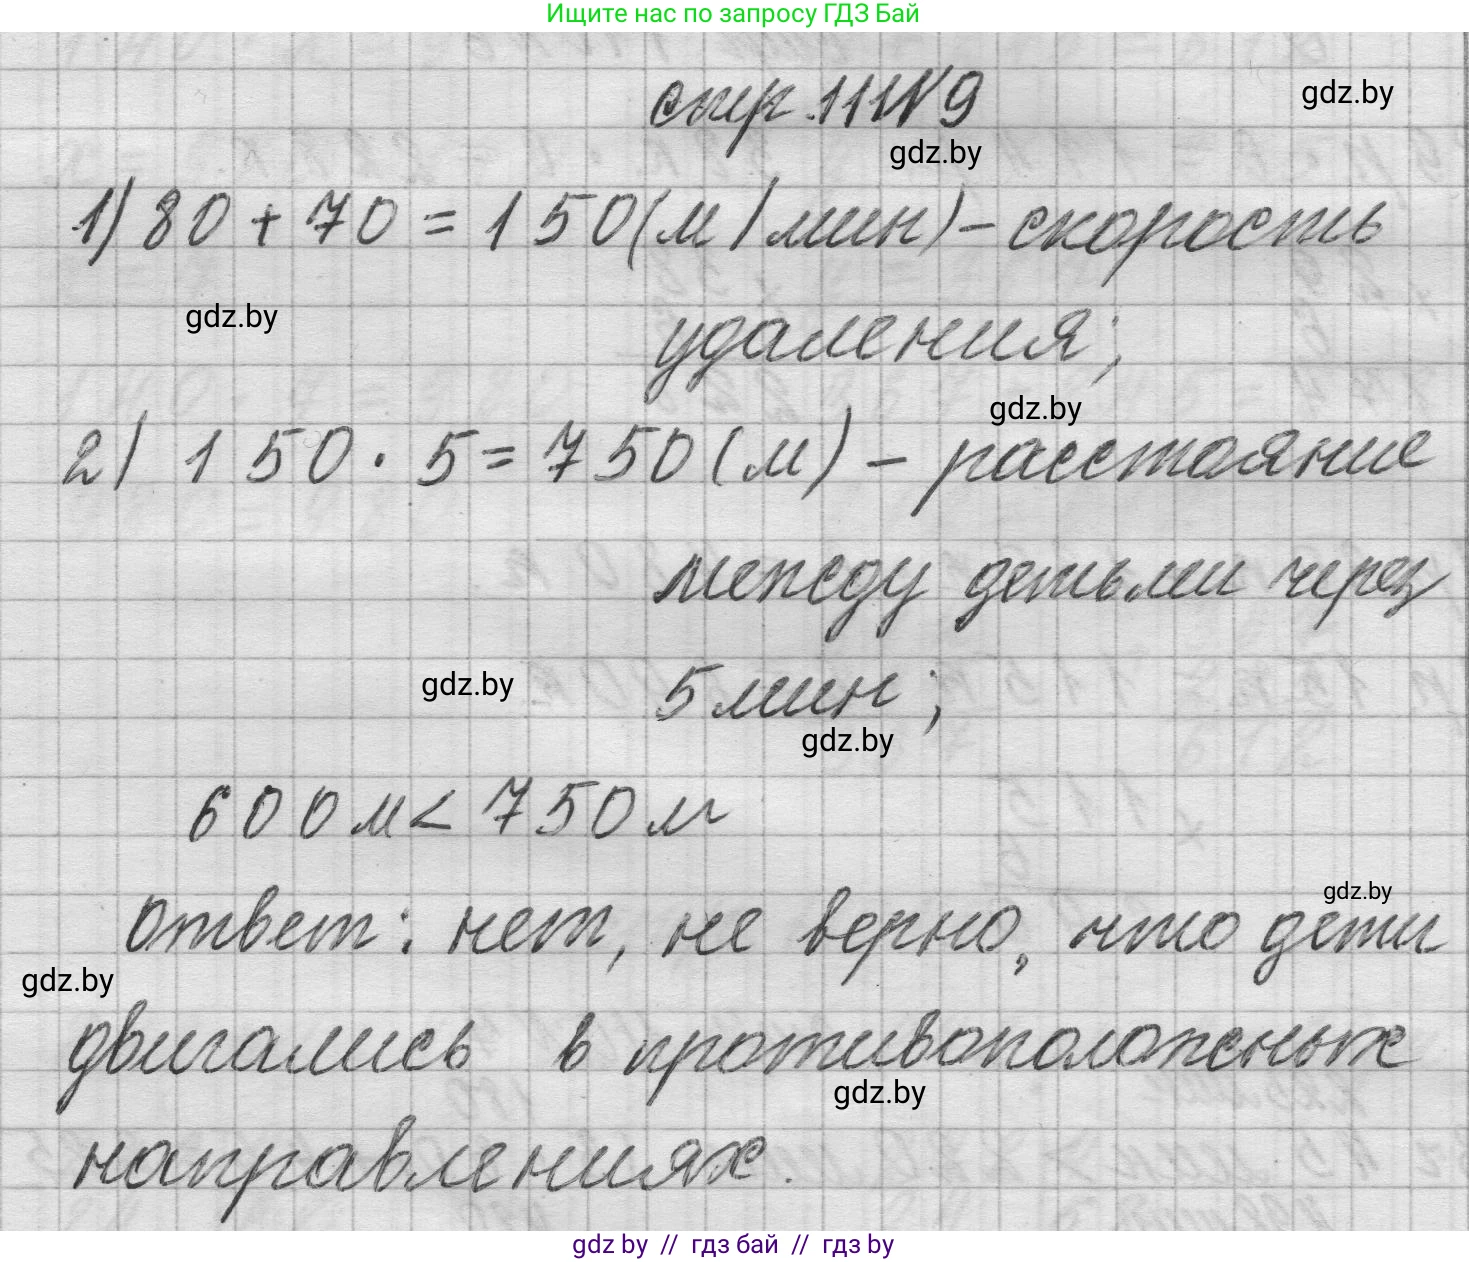 Ищите нас по запросу ГДЗ Бай
стр.111№9
gdz.by
gdz.by
1) 80 + 70 = 150 (м/мин) - скорость
gdz.by
удаления;
gdz.by
2) 150 · 5 = 750 (м) - расстояние
между детьми через
gdz.by
5 мин;
gdz.by
600 м < 750 м
gdz.by
Ответ: нет, не верно, что дети
gdz.by
двигались в противоположных
gdz.by
направлениях.
gdz by // гдз бай // гдз by